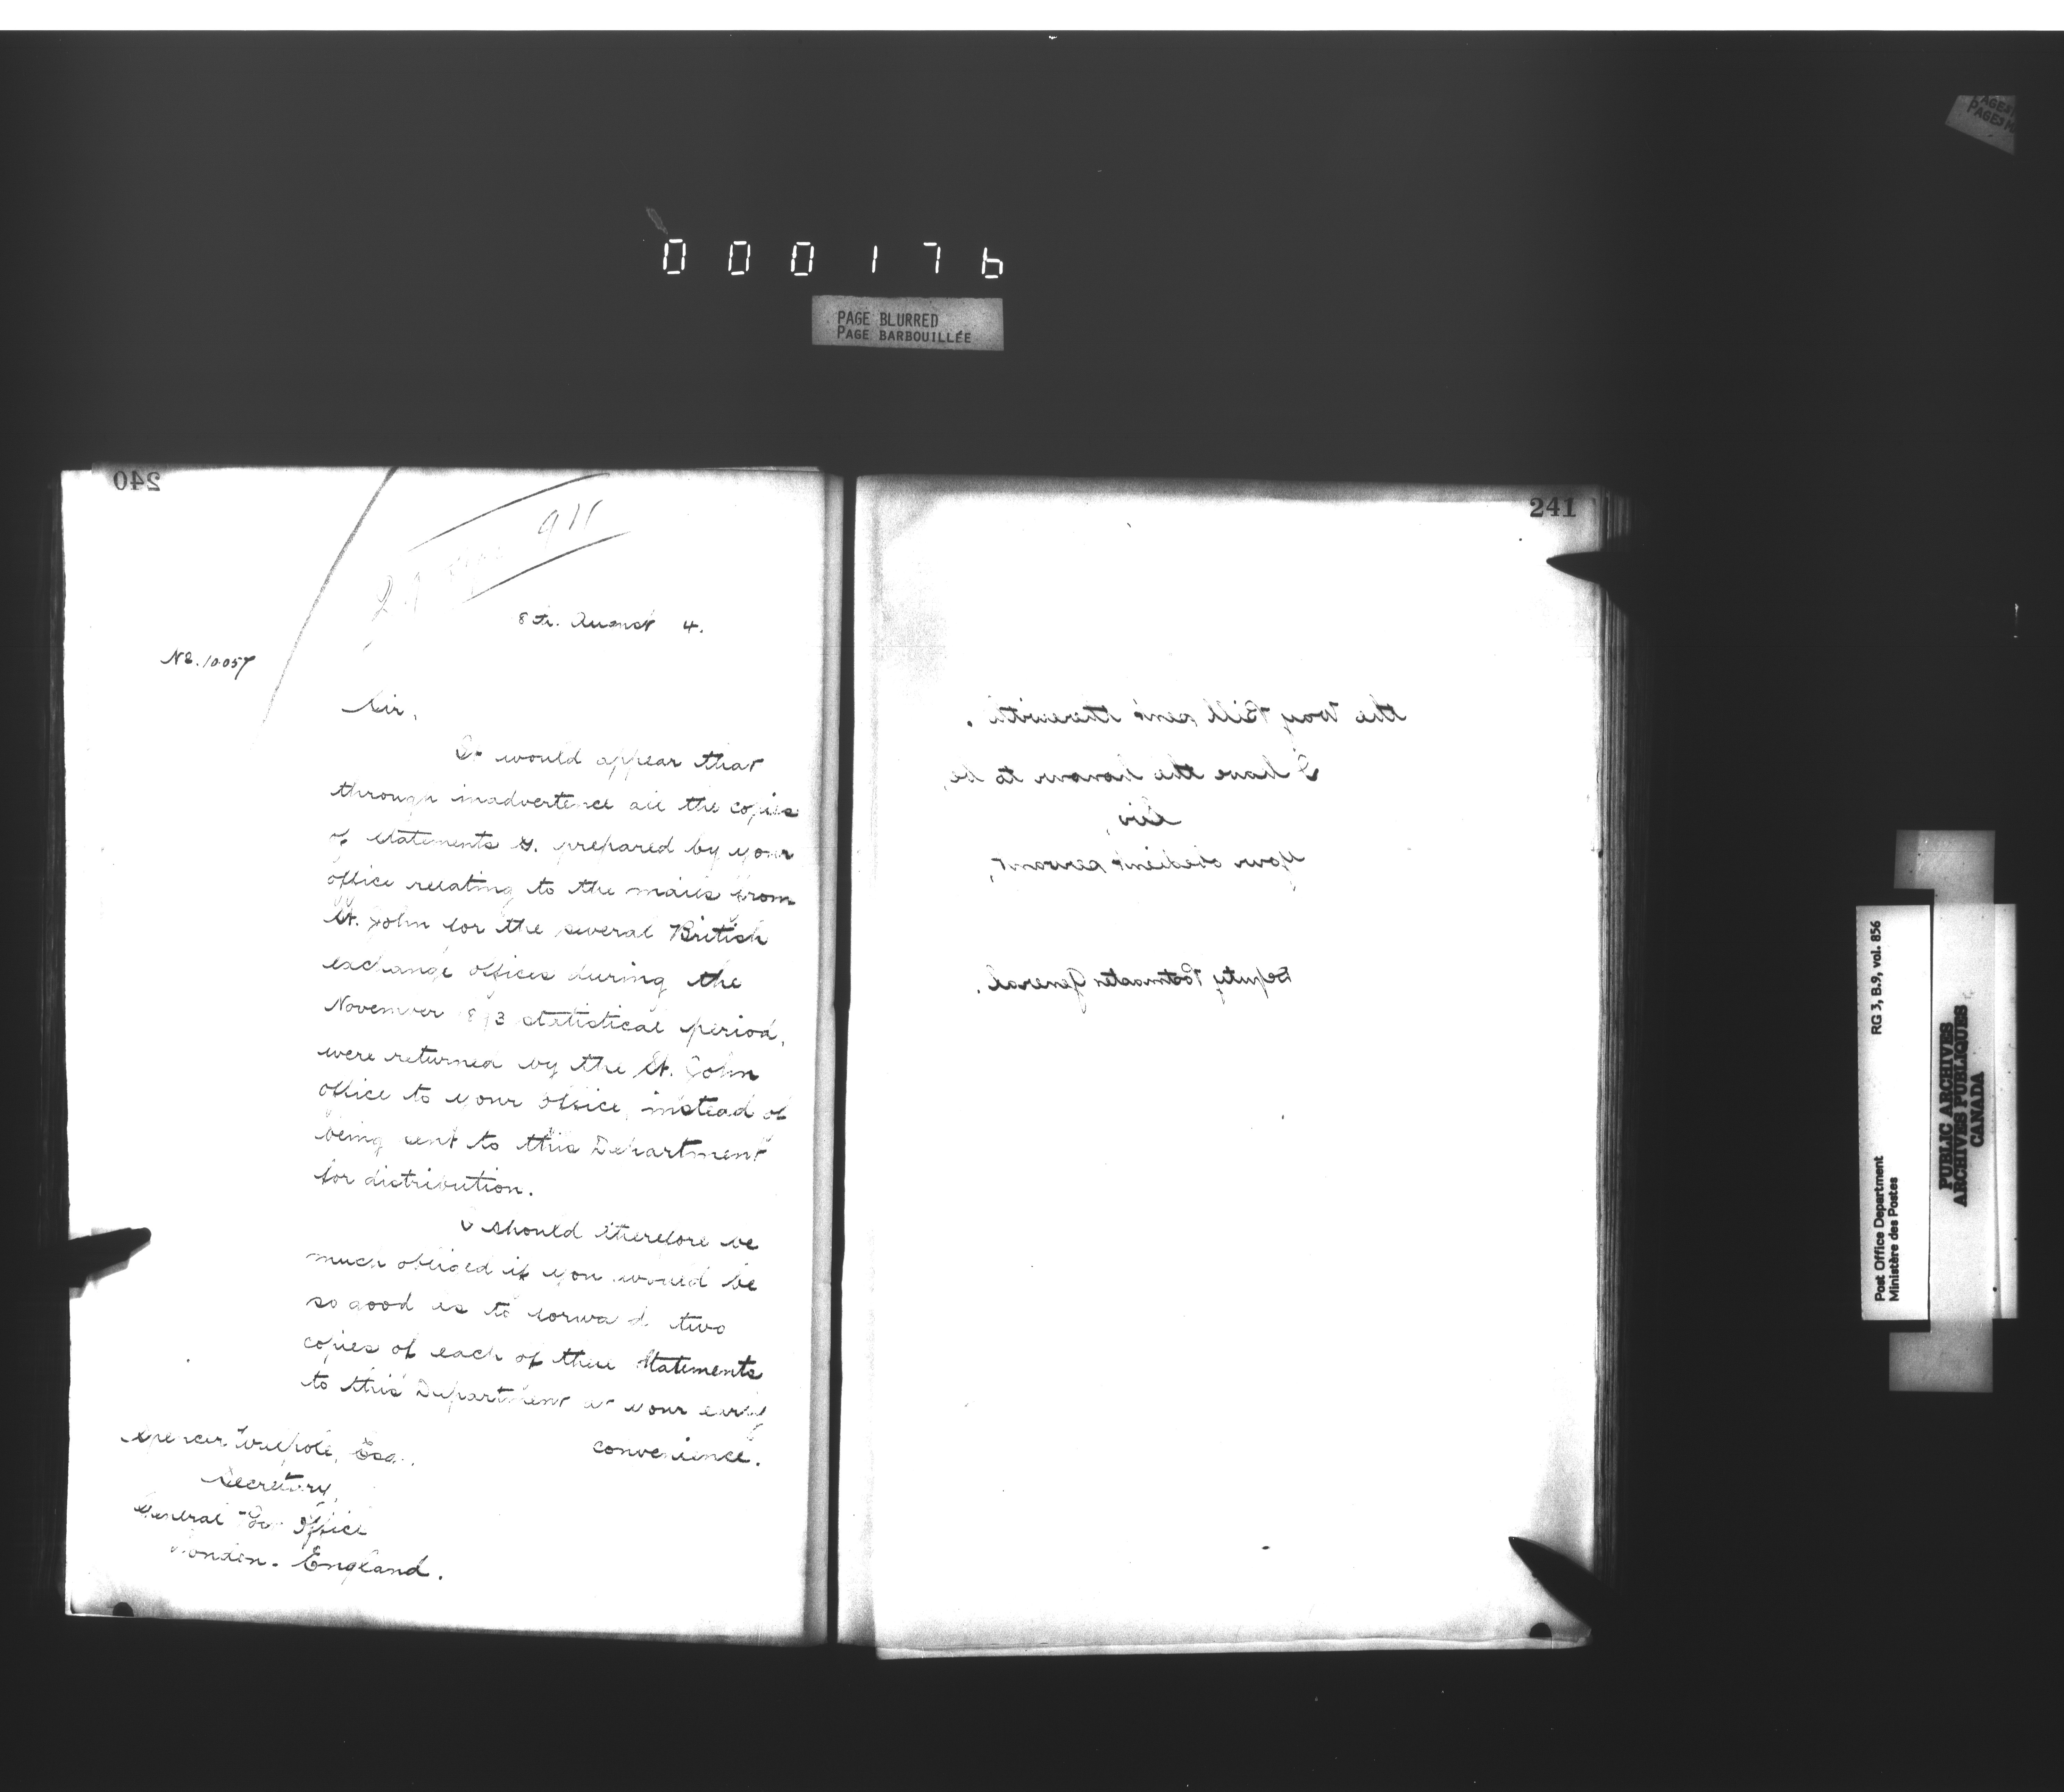 000176
PAGE BLURRED
PAGE BARBOUILLÉE
240
911
8th. August 4.
No. 10057
Sir,
It would appear that
through inadvertence all the copies
of statements G. prepared by your
office relating to the mails from
St. John for the several British
exchange offices during the
November 1893 statistical period,
were returned by the St. John
office to your office, instead of
being sent to this Department
for distribution.
I should therefore be
much obliged if you would be
so good as to forward two
copies of each of these Statements
to this Department at your early
convenience.
Spencer Walpole, Esq.,
Secretary,
General Post Office
London. England.
241
the Way Bill sent therewith.
I have the honour to be,
Sir,
Your obedient servant,
Deputy Postmaster General.
RG 3, B.9, vol. 856
Post Office Department
Ministère des Postes
PUBLIC ARCHIVES
ARCHIVES PUBLIQUES
CANADA